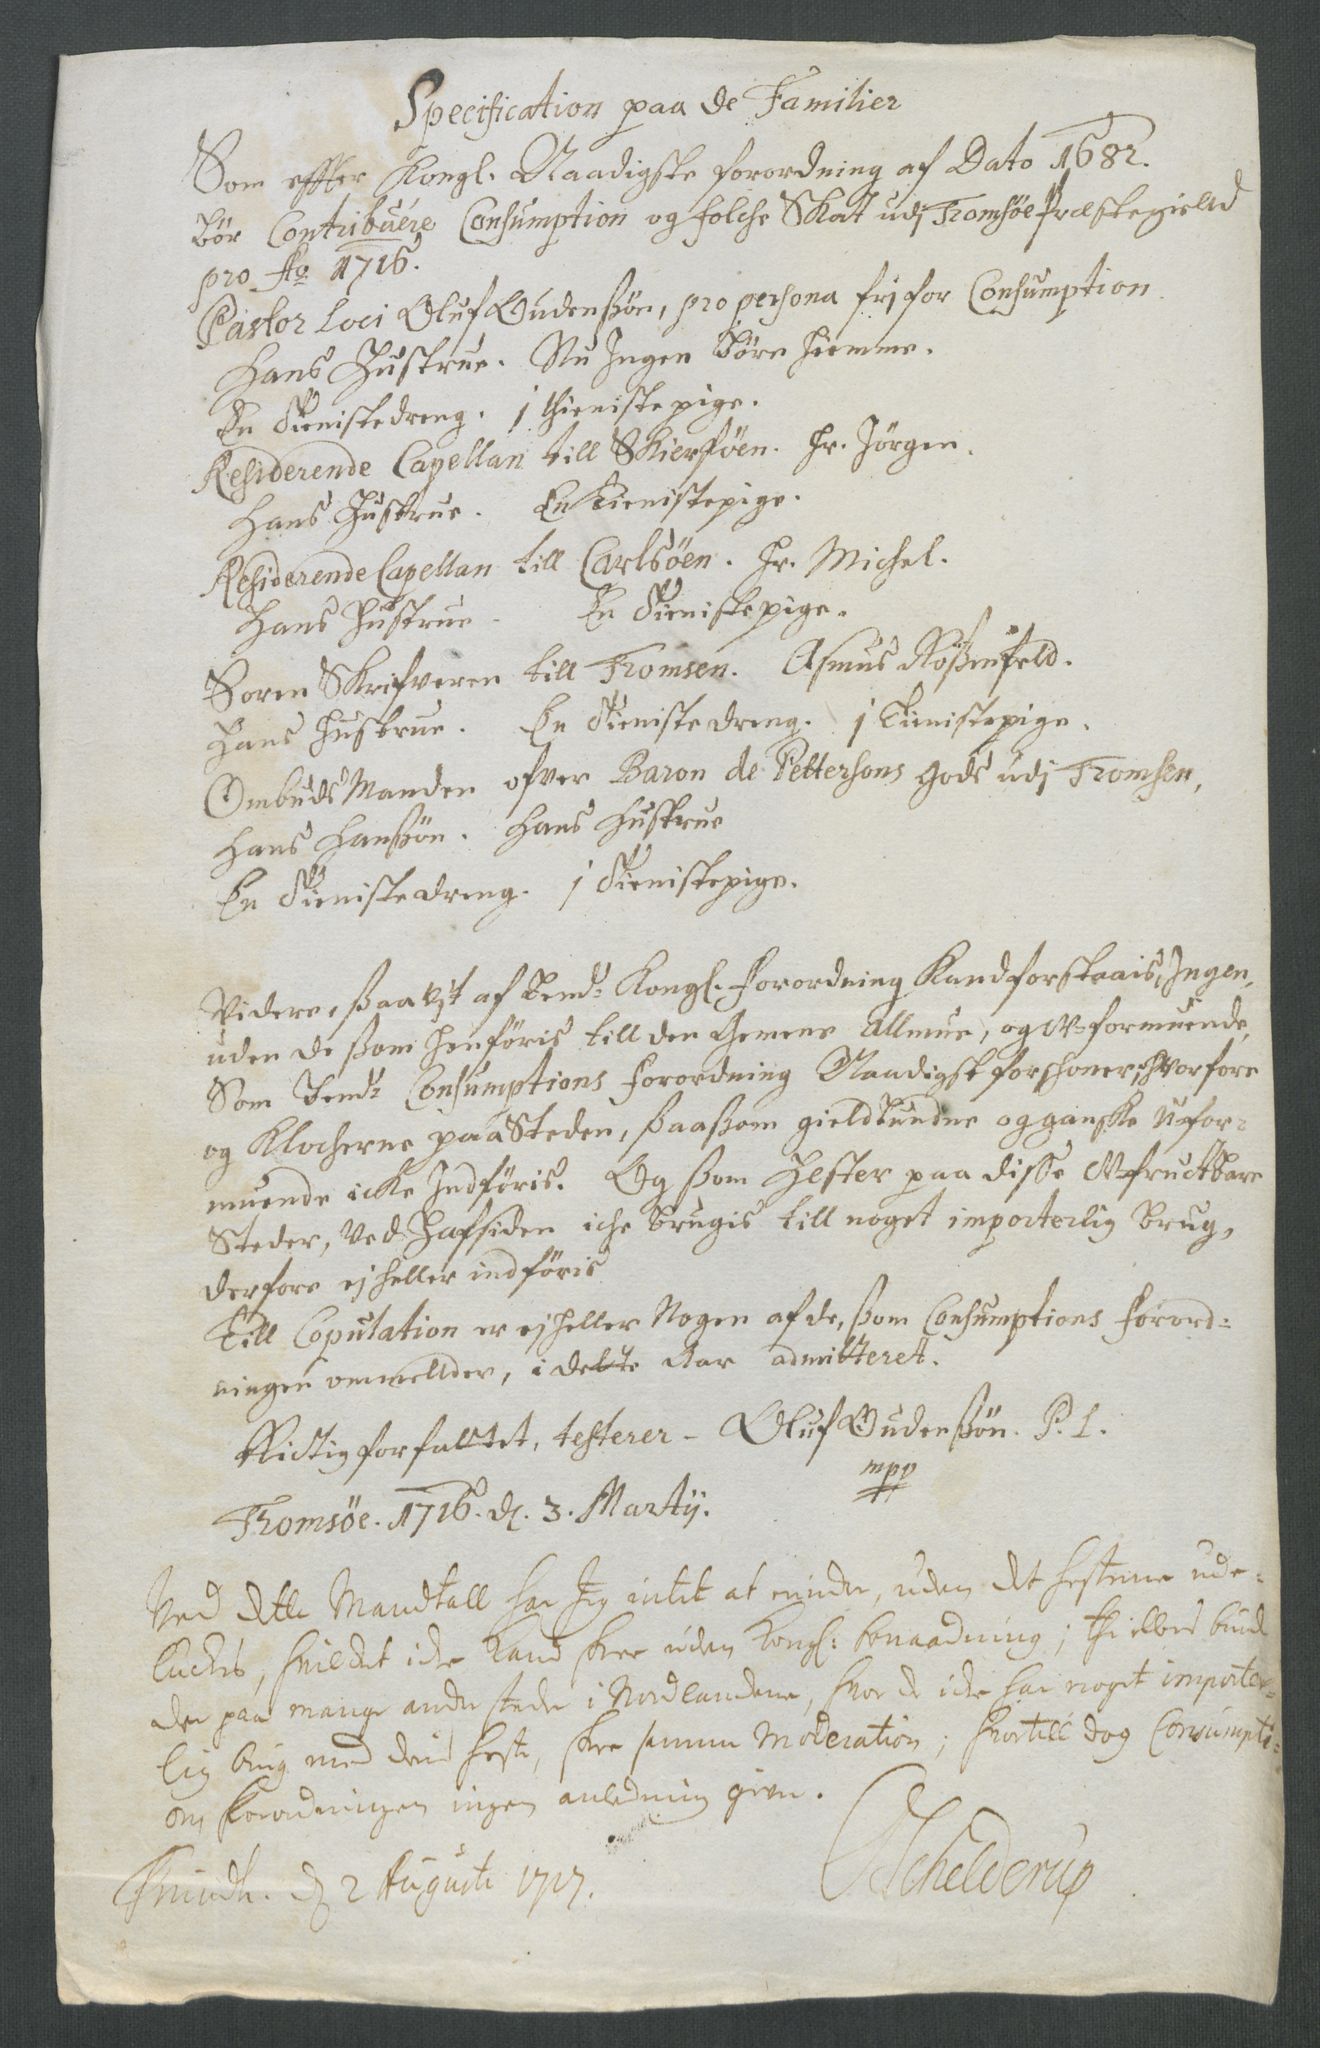 Specification paa de Familier
Som effter Kongl. Naadigste forordning af Dato 1682.
bör Contribuére Consumption og folche Skat udj Tromsöe Præstegield
pro Ao 1716.
Pastor Loci Oluf Gudenssön, pro persona frj for Consumption
Hans Hustrue. Nu Ingen Börn hiemme.
En Tienistedreng. j thienistepige.
Residerende Capellan till Skierföen. Hr. Jörgen.
Hans Hustrue. En tienistepige.
Residerende Capellan till Carlsöen. Hr. Michel.
Hans Hustrue - En Tienistepige.
Soren Skrifveren till Tromsen. Asmus Rossenfeld.
Hans Hustrue. En Tienistedreng. j Tienistepige.
Ombuds Manden ofver Baron de Pettersons Gods udj Tromsen,
Hans Hanssön. Hans Hustrue
En Tienistedreng. j Tienistepige.
Videre, ssaavjt af bemd: Kongl. Forordning Kand forstaais, Ingen,
uden de ssom henföris till den Gemene Allmue, og Uformuende,
Som bemdt Consumptions Forordning Naadigst forschoner, hvorfore
og Klocherne paa Steden, ssaassom gieldbundne og ganske Ufor-
muende icke Indföris. Og ssom Hester paa disse Ufrucktbare
Steder, ved Hafsiden iche brugis till noget importerlig brug,
derfore ej heller indföris
Till Copulation er ej heller Nogen af de, ssom Consumptions Forord-
ningen ommellder, i dette Aar admitteret.
Rictig forfattet, testerer - Oluf Gudenssön. P. L.
mpp
Tromsöe. 1716. d. 3. Martij.
Ved dette Mandtall har Jeg intet at erindre, uden det hesterne ude-
luckis, huilcket icke kand skee uden Kongl: benaadning; thi ellers burde
der paa mange andre steder i Nordlandene, hvor de icke har noget importer-
lig brug med deris heste, skee samme Moderation; hvortill dog Consumpti-
on forordningen ingen anledning giver.
Trundh. d 2 Augusti 1717.
Schelderup